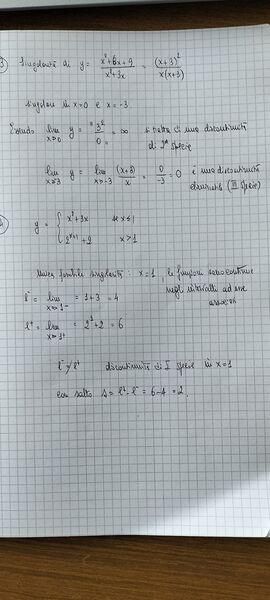 3) Singolarità di y = (x²+6x+9)/(x²+3x) = (x+3)²/(x(x+3))
singolare in x=0 e x=-3.
Essendo lim x→0 y = "3²/0" = ∞ si tratta di una discontinuità
di 2ª Specie
lim x→-3 y = lim x→-3 (x+3)/x = 0/-3 = 0 è una discontinuità
eliminabile (III Specie)
y = { x²+3x se x≤1
2^(x+1)+2 x>1
Unica possibile singolarità: x=1, le funzioni sono continue
negli intervalli ad esse
l⁻ = lim x→1⁻ = 1+3 = 4
l⁺ = lim x→1⁺ = 2²+2 = 6
l⁻≠l⁺ discontinuità di I specie in x=1
con salto s = l⁺-l⁻ = 6-4 = 2.